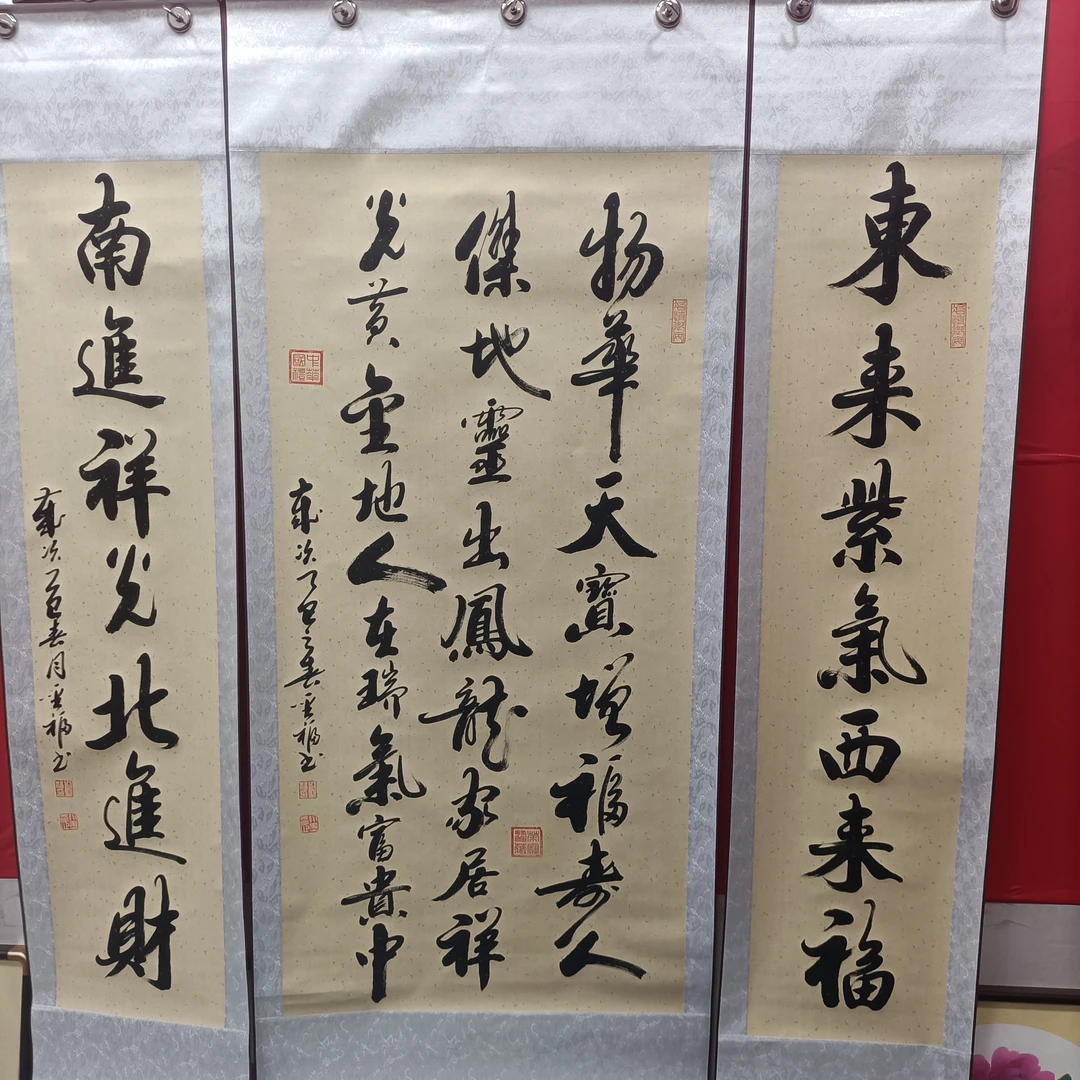 東来紫氣西来福
物華天寶增福寿人
傑地靈出鳳龍家居祥
光黄金地人在瑞氣富貴中
歲次之春福书
南進祥光北進財
歲次春月福书